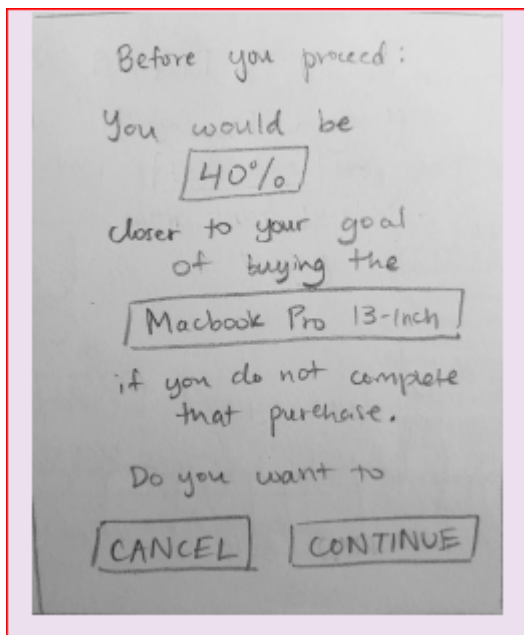 Before you proceed:
You would be
40%
closer to your goal
of buying the
Macbook Pro 13-inch
if you do not complete
that purchase.
Do you want to
CANCEL CONTINUE